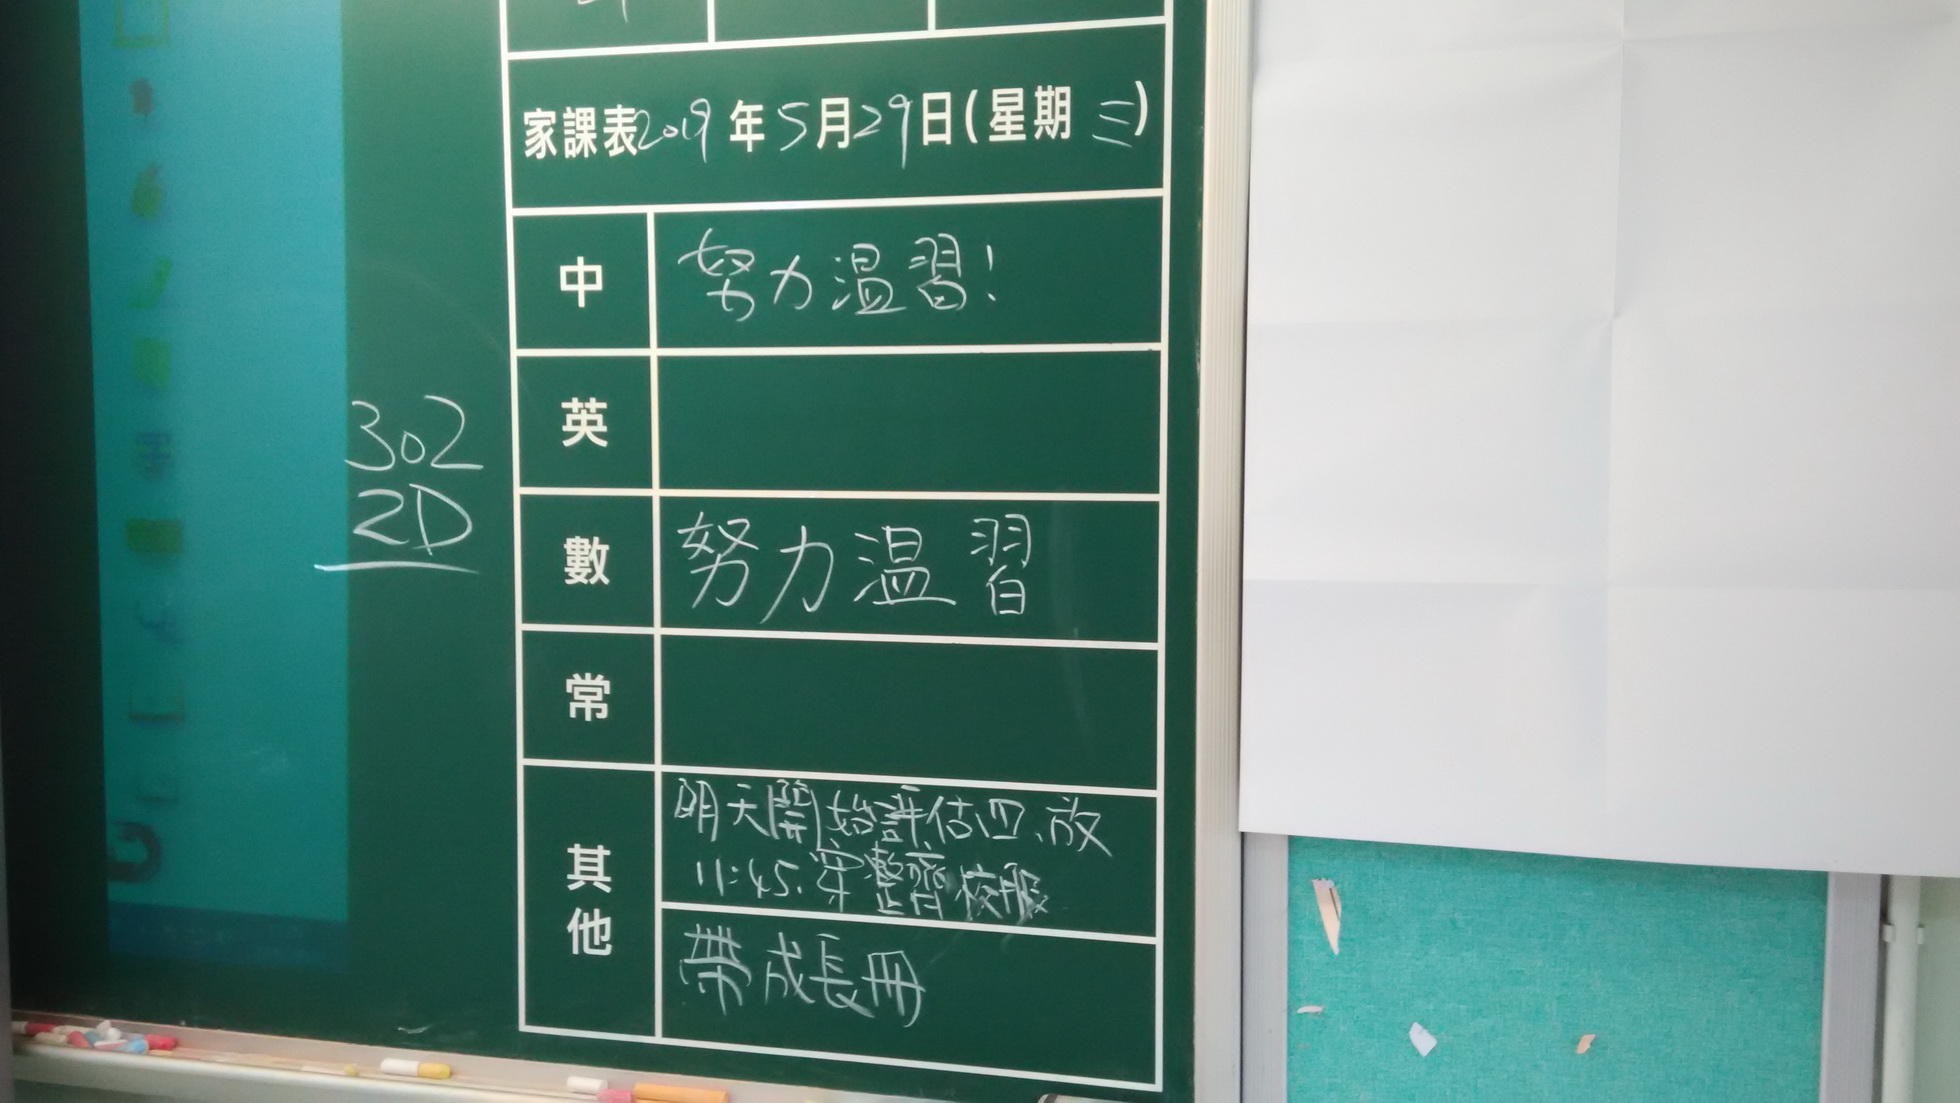 家課表2019年5月29日(星期三)
中 努力溫習!
英
數 努力溫習
常
其他 明天開始評估四、放
11:45.穿整齊校服
帶成長冊
302
2D